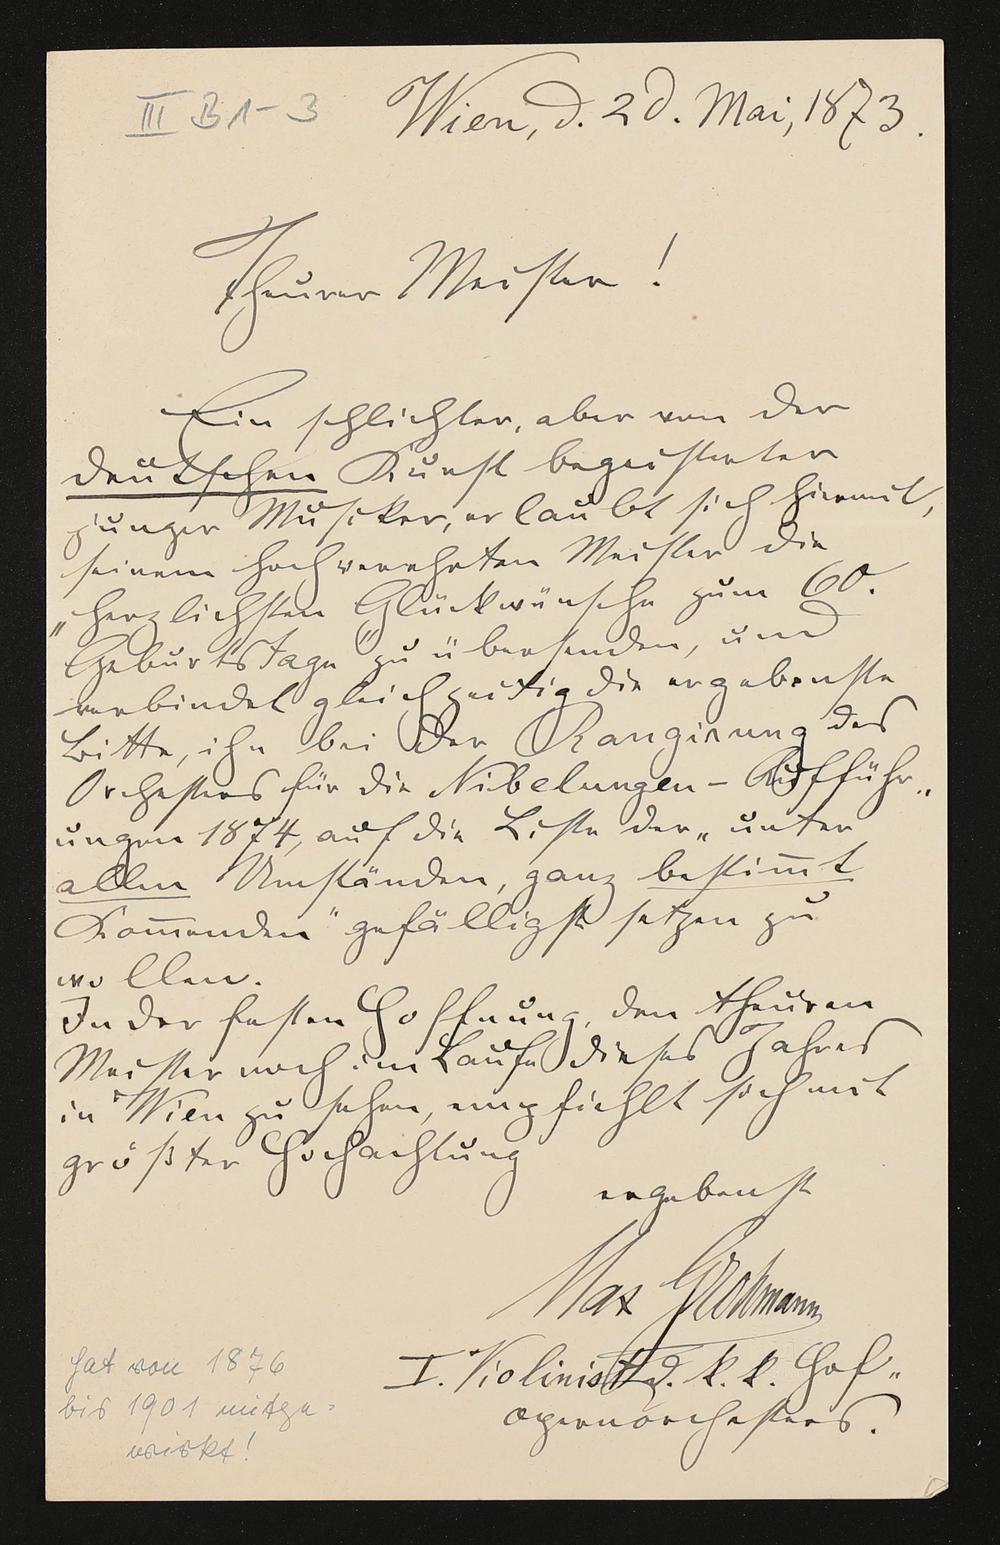 III B 1-3
Wien, d. 20. Mai, 1873.
Theurer Meister!
Ein schlichter, aber von der
deutschen Kunst begeisterter
junger Musiker, erlaubt sich hiemit,
seinem hochverehrten Meister die
„herzlichsten Glückwünsche zum 60.
Geburtstage" zu übersenden, und
verbindet gleichzeitig die ergebenste
Bitte, ihn bei der Rangirung des
Orchesters für die Nibelungen-Aufführ„
ungen 1874, auf die Liste der „unter
allen Umständen, ganz bestim̅t
Kom̅enden" gefälligst setzen zu
wollen.
In der festen Hoffnung, den theuren
Meister noch im Laufe dieses Jahres
in Wien zu sehen, empfiehlt sich mit
größter Hochachtung
ergebenst
Max Grohmann
I. Violinist d. k. k. Hof„
opernorchesters.
hat von 1876
bis 1901 mitge-
wirkt!